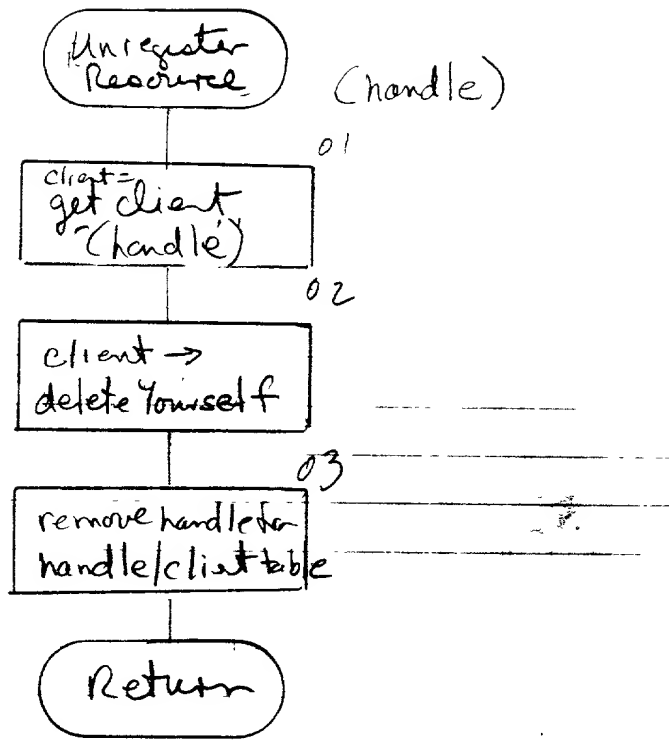 Unregister
Resource
(handle)
01
client =
get client
(handle)
02
client →
deleteYourself
03
remove handle for
handle/client table
Return